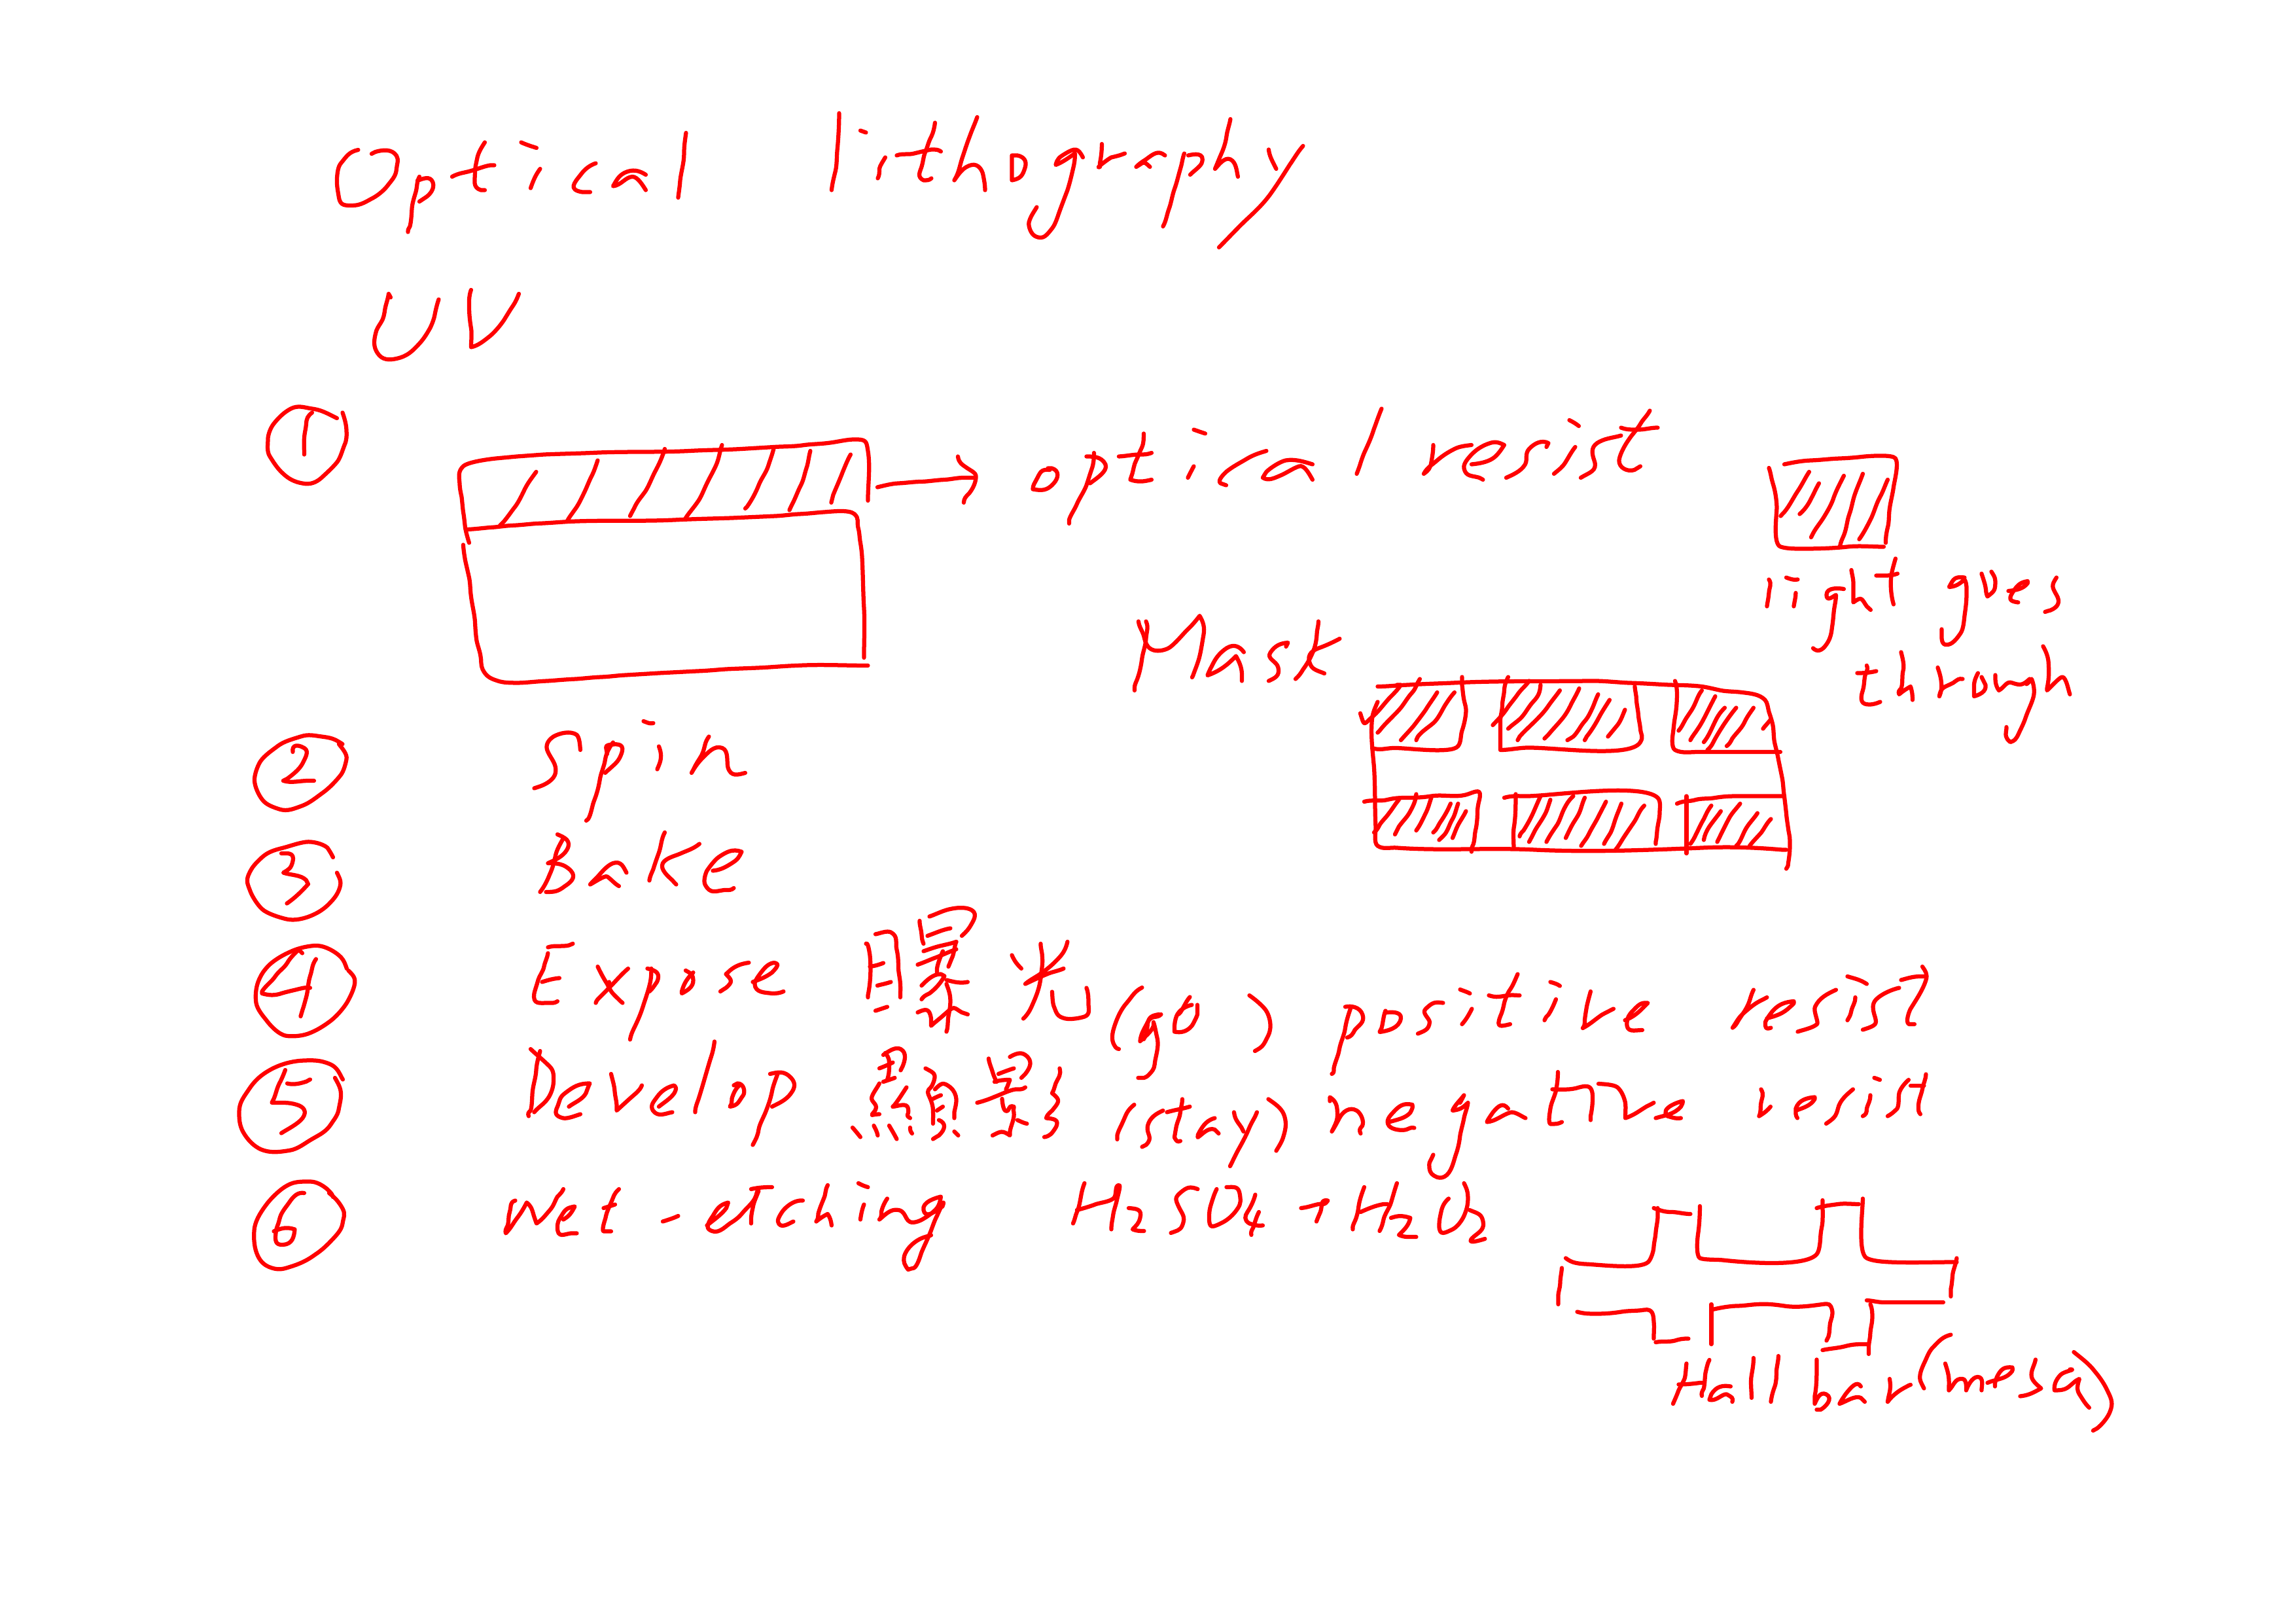 Optical lithography
UV
① optical resist
light goes
through
Mask
② Spin
③ Bake
④ Expose 曝光 (go) positive resist
⑤ Develop 顯影 (stay) negative resist
⑥ wet-etching H2SO4+H2O2
Hall bar (mesa)